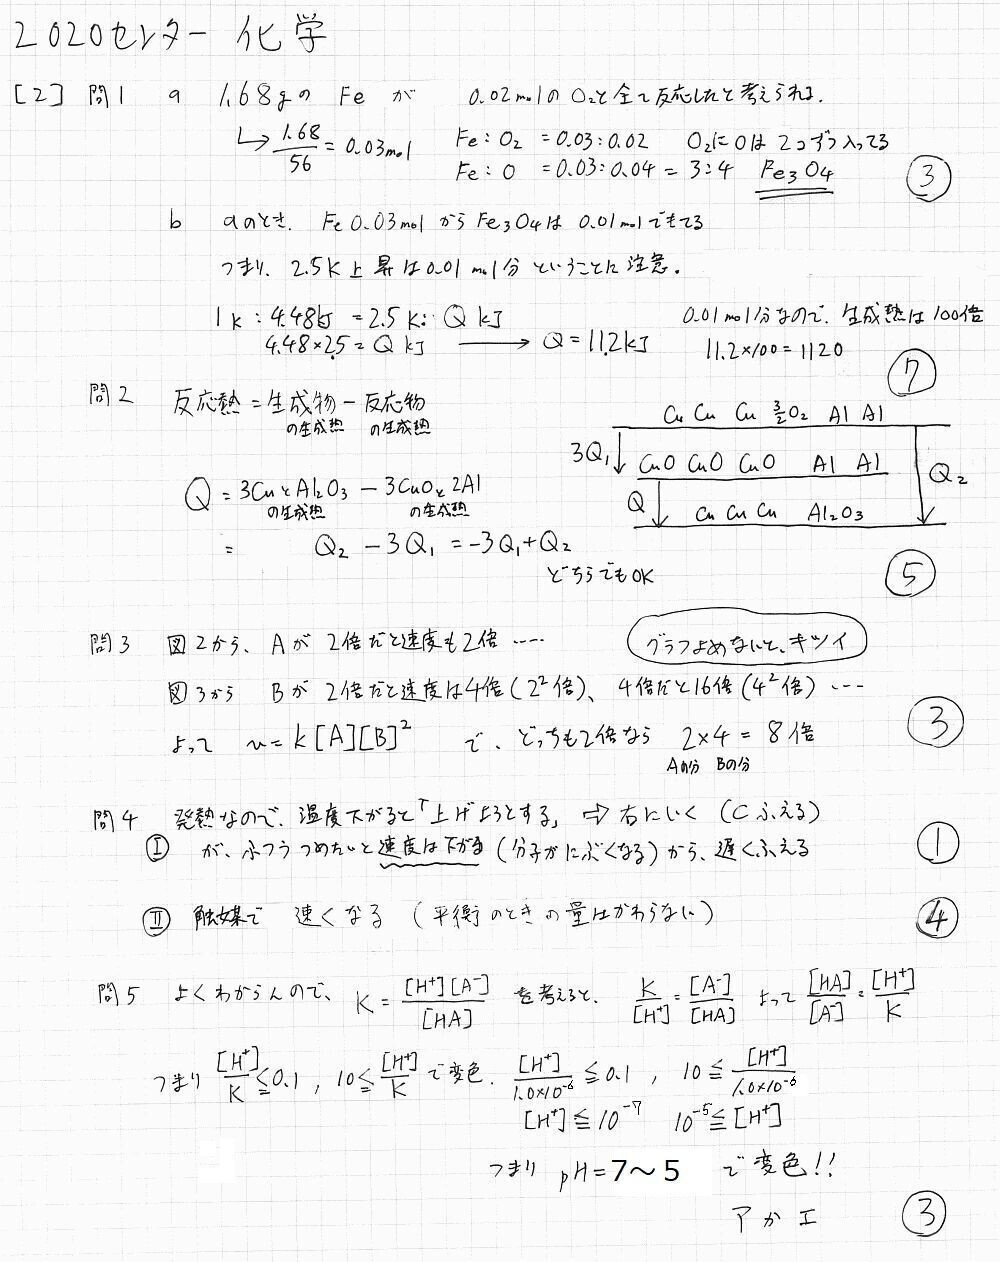 2020センター 化学
[2] 問1 a 1.68gの Fe が 0.02molのO₂と全て反応したと考えられる.
↳ 1.68/56 = 0.03mol Fe : O₂ = 0.03 : 0.02 O₂にOは2つずつ入ってる
Fe : O = 0.03 : 0.04 = 3 : 4 Fe₃O₄ ③
b aのとき. Fe 0.03mol から Fe₃O₄は 0.01molできてる
つまり、2.5K上昇は0.01mol分ということに注意.
1K : 4.48kJ = 2.5K : Q kJ 0.01mol分なので、生成熱は100倍
4.48×2.5 = Q kJ → Q = 11.2kJ 11.2×100 = 1120
⑦
問2 反応熱 = 生成物 − 反応物
の生成熱 の生成熱
Cu Cu Cu 3/2 O₂ Al Al
3Q₁ CuO CuO CuO Al Al Q₂
Q Cu Cu Cu Al₂O₃
Q = 3CuとAl₂O₃ − 3CuOと2Al
の生成熱 の生成熱
= Q₂ − 3Q₁ = −3Q₁ + Q₂
どちらでもOK ⑤
問3 図2から、Aが 2倍だと速度も2倍 ‥‥ グラフよめないと、キツイ
図3から Bが 2倍だと速度は4倍(2²倍)、4倍だと16倍(4²倍) ‥‥
よって v = k[A][B]² で、どっちも2倍なら 2×4 = 8倍 ③
Aの分 Bの分
問4 発熱なので、温度下がると「上げようとする」 ⇨ 右にいく (Cふえる)
Ⅰ が、ふつうつめたいと速度は下がる (分子がにぶくなる)から、遅くふえる ①
Ⅱ 触媒で 速くなる (平衡のときの量はかわらない) ④
問5 よくわからんので、 K = [H⁺][A⁻]/[HA] を考えると、 K/[H⁺] = [A⁻]/[HA] よって [HA]/[A⁻] = [H⁺]/K
つまり [H⁺]/K ≦ 0.1 , 10 ≦ [H⁺]/K で変色. [H⁺]/1.0×10⁻⁶ ≦ 0.1 , 10 ≦ [H⁺]/1.0×10⁻⁶
[H⁺] ≦ 10⁻⁷ 10⁻⁵ ≦ [H⁺]
つまり pH = 7〜5 で変色!!
アかエ ③